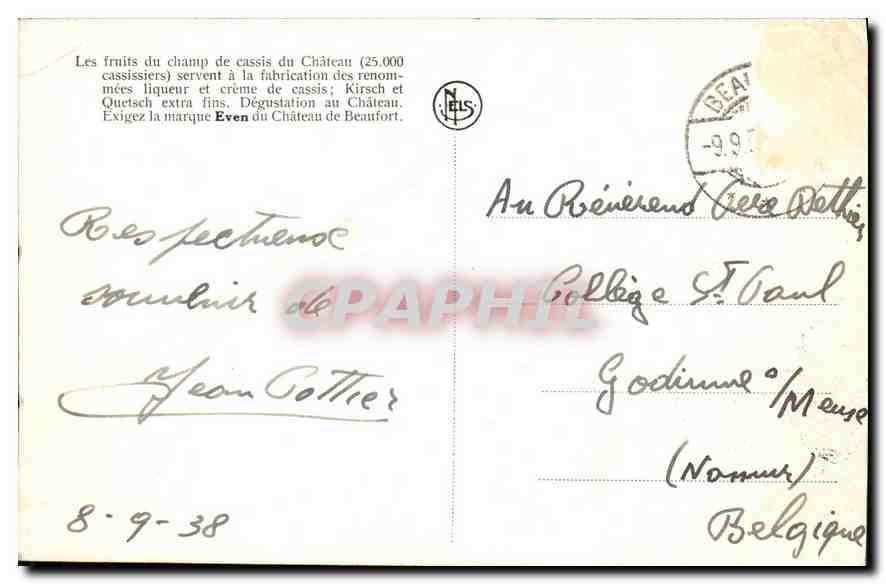 Les fruits du champ de cassis du Château (25.000
cassissiers) servent à la fabrication des renom-
mées liqueur et crème de cassis; Kirsch et
Quetsch extra fins. Dégustation au Château.
Exigez la marque Even du Château de Beaufort.
NELS
BEAU
-9.9.
Respectueux
souvenir de
Jean Pottier
8-9-38
Au Révérend Père Dethier
Collège St Paul
Godinne s/Meuse
(Namur)
Belgique
CPAPHIL